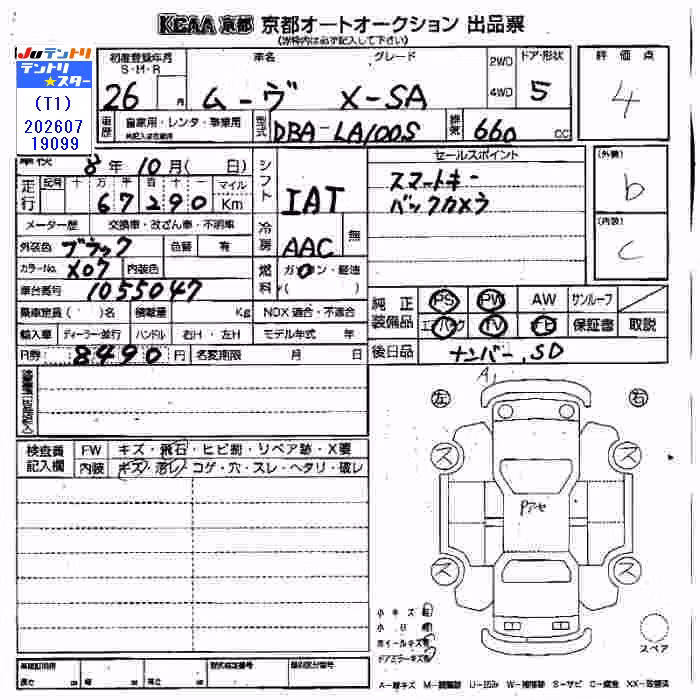 KCAA 京都 京都オートオークション 出品票
(枠内は必ず記入して下さい)
Juテントリ
テントリ★スター
(T1)
202607
19099
初度登録年月 車名 グレード 2WD ドア・形状 評価点
S・H・R 4WD
26 月 ムーヴ X-SA 5 4
車歴 自家用・レンタ・事業用 型式 DBA-LA100S 排気 660 CC
車検 8年 10月( 日) シフト IAT セールスポイント (外装)
走行 記号 十 万 千 百 十 一 マイル スマートキー b
67290 Km バックカメラ
メーター歴 交換車・改ざん車・不明車 冷房 AAC 無 (内装)
外装色 ブラック 色替 有 C
カラーNo. X07 内装色 燃料 ガソリン・軽油
車台番号 1055047 ( )
乗車定員 ( )名 積載量 Kg NOX 適合・不適合 純正装備品 PS PW AW サンルーフ
輸入車 ディーラー・並行 ハンドル 右H・左H モデル年式 年 エアバック TV 保証書 取説
R券 8490円 名変期限 月 日 後日品 ナンバー、SD
A1
左 右
検査員記入欄 FW キズ・飛石・ヒビ割・リペア跡・X要
内装 キズ・汚レ・コゲ・穴・スレ・ヘタリ・破レ
ス ス
Pアセ
ス ス
小キズ有
小凹有
ホイールキズ有
ドアミラーキズ有
スペア
長さ cm 幅 cm 高さ cm 型式指定番号 類別区分番号